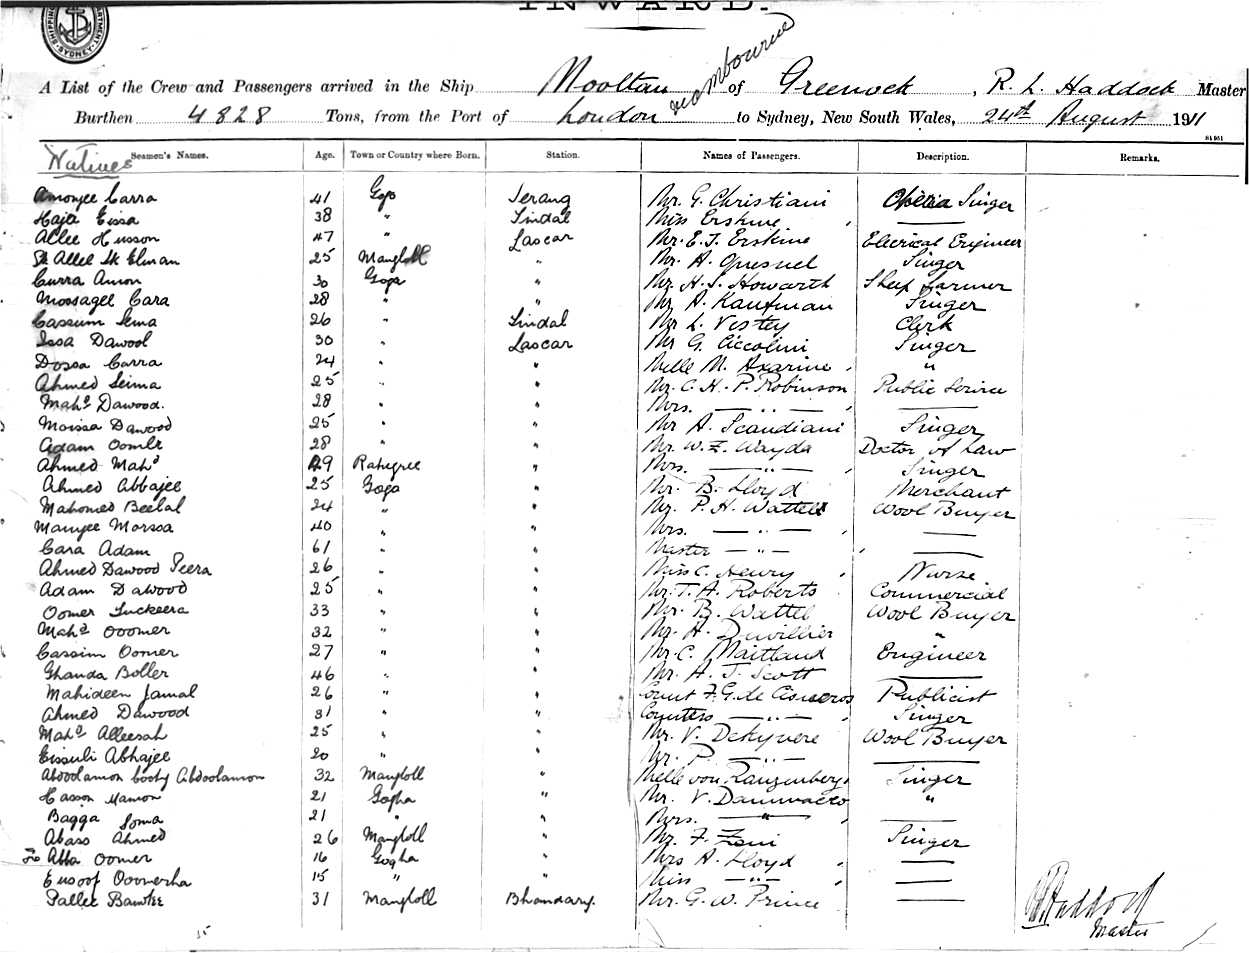 INWARD.
SHIPPING SYDNEY
A List of the Crew and Passengers arrived in the Ship Mooltan of Greenock, R. L. Haddock Master
via Melbourne
Burthen 4828 Tons, from the Port of London to Sydney, New South Wales, 24th August 1911
Natives
Seamen's Names. Age. Town or Country where Born. Station. Names of Passengers. Description. Remarks.
Amonjee Carra 41 Gogo Serang Mr. G. Christiani Opera Singer
Haja Eissa 38 " Tindal Miss Erskine
Allee Husson 47 " Lascar Mr. E. T. Erskine Electrical Engineer
Sk Allee Sk Elman 25 Mangloll " Mr. A. Quesnel Singer
Curra Amon 30 Goga " Mr. H. S. Howarth Sheep Farmer
Mossagee Cara 28 " " Mr. A. Kaufman Singer
Cassum Sema 26 " Tindal Mr L. Vestey Clerk
Issa Dawool 30 " Lascar Mr G. Ciccolini Singer
Dossa Carra 24 " " Melle M. Axarine "
Ahmed Seima 25 " " Mr. C. H. P. Robinson Public Service
Mahd Dawood. 28 " " Mrs. — " — ——
Moissa Dawood 25 " " Mr A. Scandiani Singer
Adam Oomer 28 " " Mr. W. Z. Wayda Doctor of Law
Ahmed Mahd 29 " Mrs. — " — Singer
Ahmed Abbajee 25 Gogo " Mr. B. Lloyd Merchant
Mahomed Beelal 24 " " Mr. P. H. Wattel Wool Buyer
Mamjee Morsoa 40 " " Mrs. — " — ——
Cara Adam 61 " " Master — " — ——
Ahmed Dawood Peera 26 " " Miss C. Henry Nurse
Adam Dawood 25 " " Mr. T. A. Roberts Commercial
Oomer Luckeera 33 " " Mr. B. Wattel Wool Buyer
Mahd Ooomer 32 " " Mr. H. Duvillier "
Cassim Oomer 27 " " Mr. C. Maitland Engineer
Ghanda Boller 46 " " Mr. A. J. Scott ——
Mahideen Jamal 26 " " Count F. G. de Cisneros Publicist
Ahmed Dawood 31 " " Countess — " — Singer
Mahd Alleesah 25 " " Mr. V. Dekyvere Wool Buyer
Eissuli Abhajee 20 " " Mr. P. — " — ——
Abdolamon Cooty Abdoolamon 32 Mangloll " Melle von Ranzenberg Singer
Hason Mamon 21 Gogha " Mr. V. "
Bagga Soma 21 " " Mrs. — " — ——
Abass Ahmed 26 Mangloll " Mr. F. Zeni Singer
Abba Oomer 16 Gogha " Mrs A. Lloyd ——
Eusoof Ooomerha 15 " " Miss — " — ——
Pallee Bawtee 31 Mangloll Bhandary. Mr. G. W. Prince ——
R L Haddock
Master